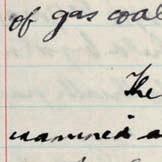 of gas coal
The
examined a